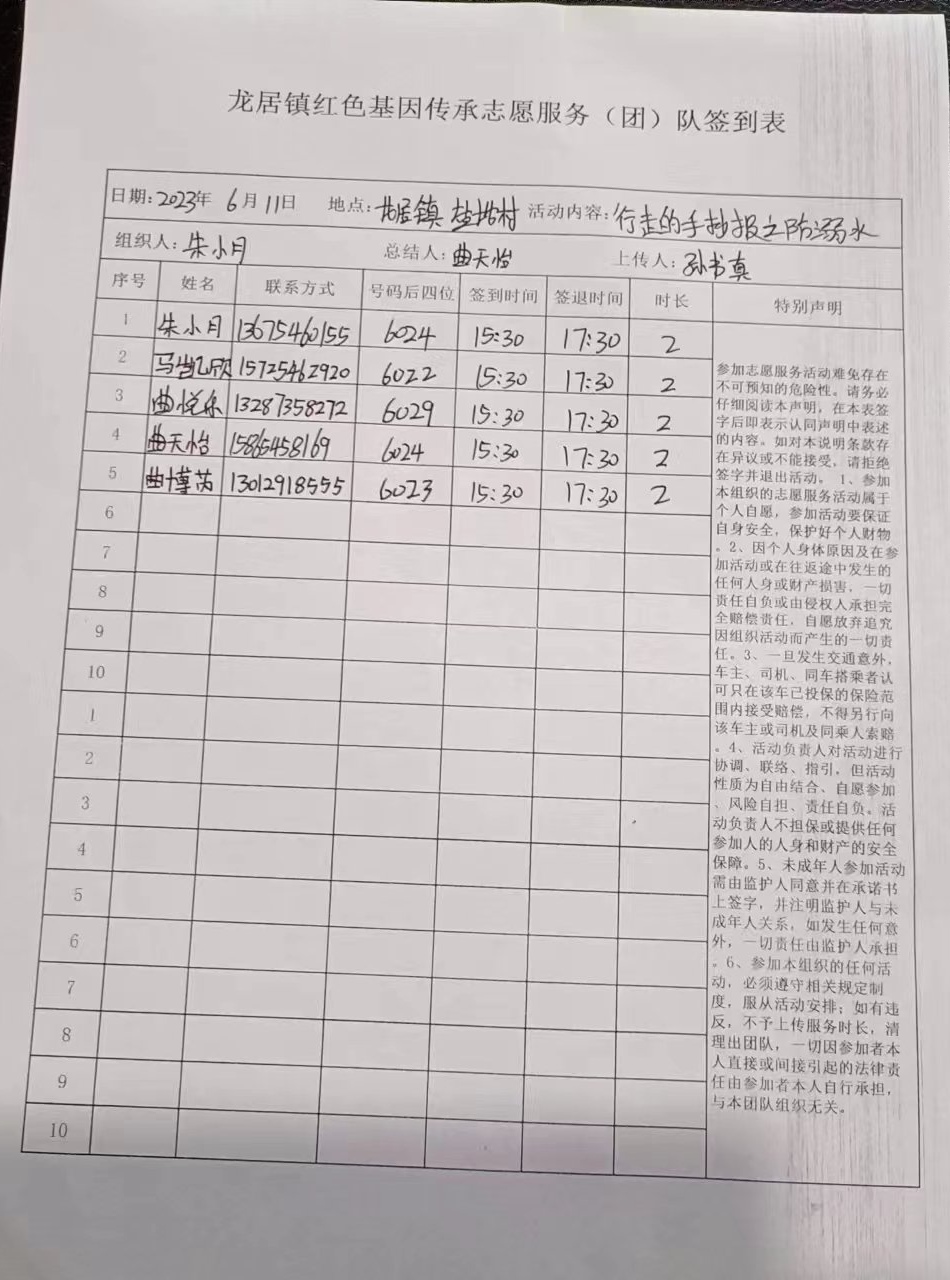 龙居镇红色基因传承志愿服务（团）队签到表
日期:2023年 6月11日 地点:龙居镇 盐垛村 活动内容:行走的手抄报之防溺水
组织人:朱小月 总结人:曲天怡 上传人:孙书真
序号 姓名 联系方式 号码后四位 签到时间 签退时间 时长 特别声明
1 朱小月 13675460155 6024 15:30 17:30 2
2 15725462920 6022 15:30 17:30 2
3 曲悦乐 13287358272 6029 15:30 17:30 2
4 曲天怡 15865458169 6024 15:30 17:30 2
5 曲博芮 13012918555 6023 15:30 17:30 2
6
7
8
9
10
1
2
3
4
5
6
7
8
9
10
参加志愿服务活动难免存在
不可预知的危险性。请务必
仔细阅读本声明，在本表签
字后即表示认同声明中表述
的内容。如对本说明条款存
在异议或不能接受，请拒绝
签字并退出活动。1、参加
本组织的志愿服务活动属于
个人自愿，参加活动要保证
自身安全，保护好个人财物
。2、因个人身体原因及在参
加活动或在往返途中发生的
任何人身或财产损害，一切
责任自负或由侵权人承担完
全赔偿责任，自愿放弃追究
因组织活动而产生的一切责
任。3、一旦发生交通意外，
车主、司机、同车搭乘者认
可只在该车已投保的保险范
围内接受赔偿，不得另行向
该车主或司机及同乘人索赔
。4、活动负责人对活动进行
协调、联络、指引，但活动
性质为自由结合、自愿参加
、风险自担、责任自负。活
动负责人不担保或提供任何
参加人的人身和财产的安全
保障。5、未成年人参加活动
需由监护人同意并在承诺书
上签字，并注明监护人与未
成年人关系，如发生任何意
外，一切责任由监护人承担
。6、参加本组织的任何活
动，必须遵守相关规定制
度，服从活动安排；如有违
反，不予上传服务时长，清
理出团队，一切因参加者本
人直接或间接引起的法律责
任由参加者本人自行承担，
与本团队组织无关。